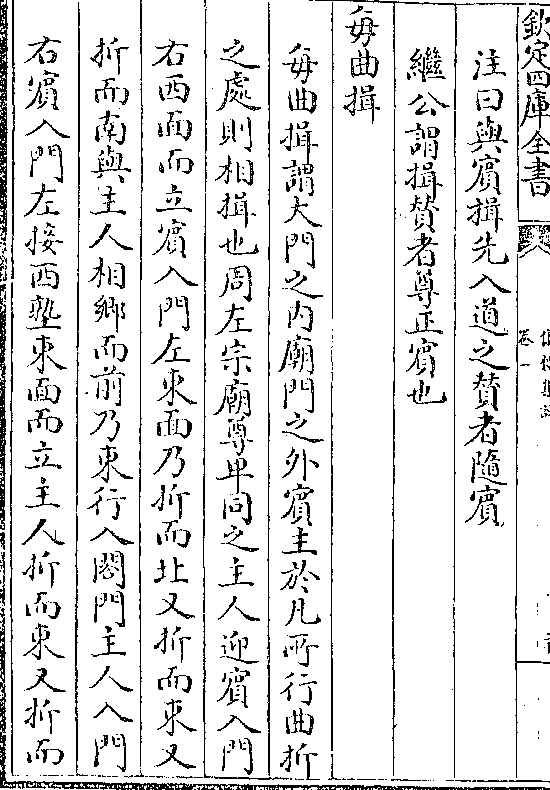 欽定四庫全書
卷一
注曰與賓揖先入道之贊者隨賓
繼公謂揖贊者尊正賓也
每曲揖
每曲揖謂大門之内廟門之外賓主於凡所行曲折
之處則相揖也周左宗廟尊卑同之主人迎賓入門
右西面而立賓入門左東面乃折而北又折而東又
折而南與主人相鄉而前乃東行入閤門主人入門
右賓入門左接西塾東面而立主人折而東又折而